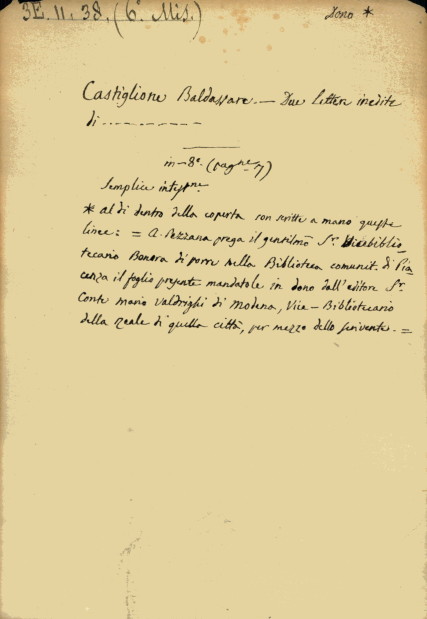 3E. 11. 38. (6.° Mis.)
Dono *
Castiglione Baldassare. — Due lettere inedite
di - - - - - - - - - -
in-8.° (pagne 7)
Semplice intestne
* al di dentro della coperta son scritte a mano queste
linee: = A. Pezzana prega il gentilmo Sr. Vicebiblio-
tecario Bonora di porre nella Biblioteca comunit. di Pia-
cenza il foglio presente mandatole in dono dall'editore Sr.
Conte Mario Valdrighi di Modena, Vice-Bibliotecario
della reale di quella città, per mezzo dello scrivente. =